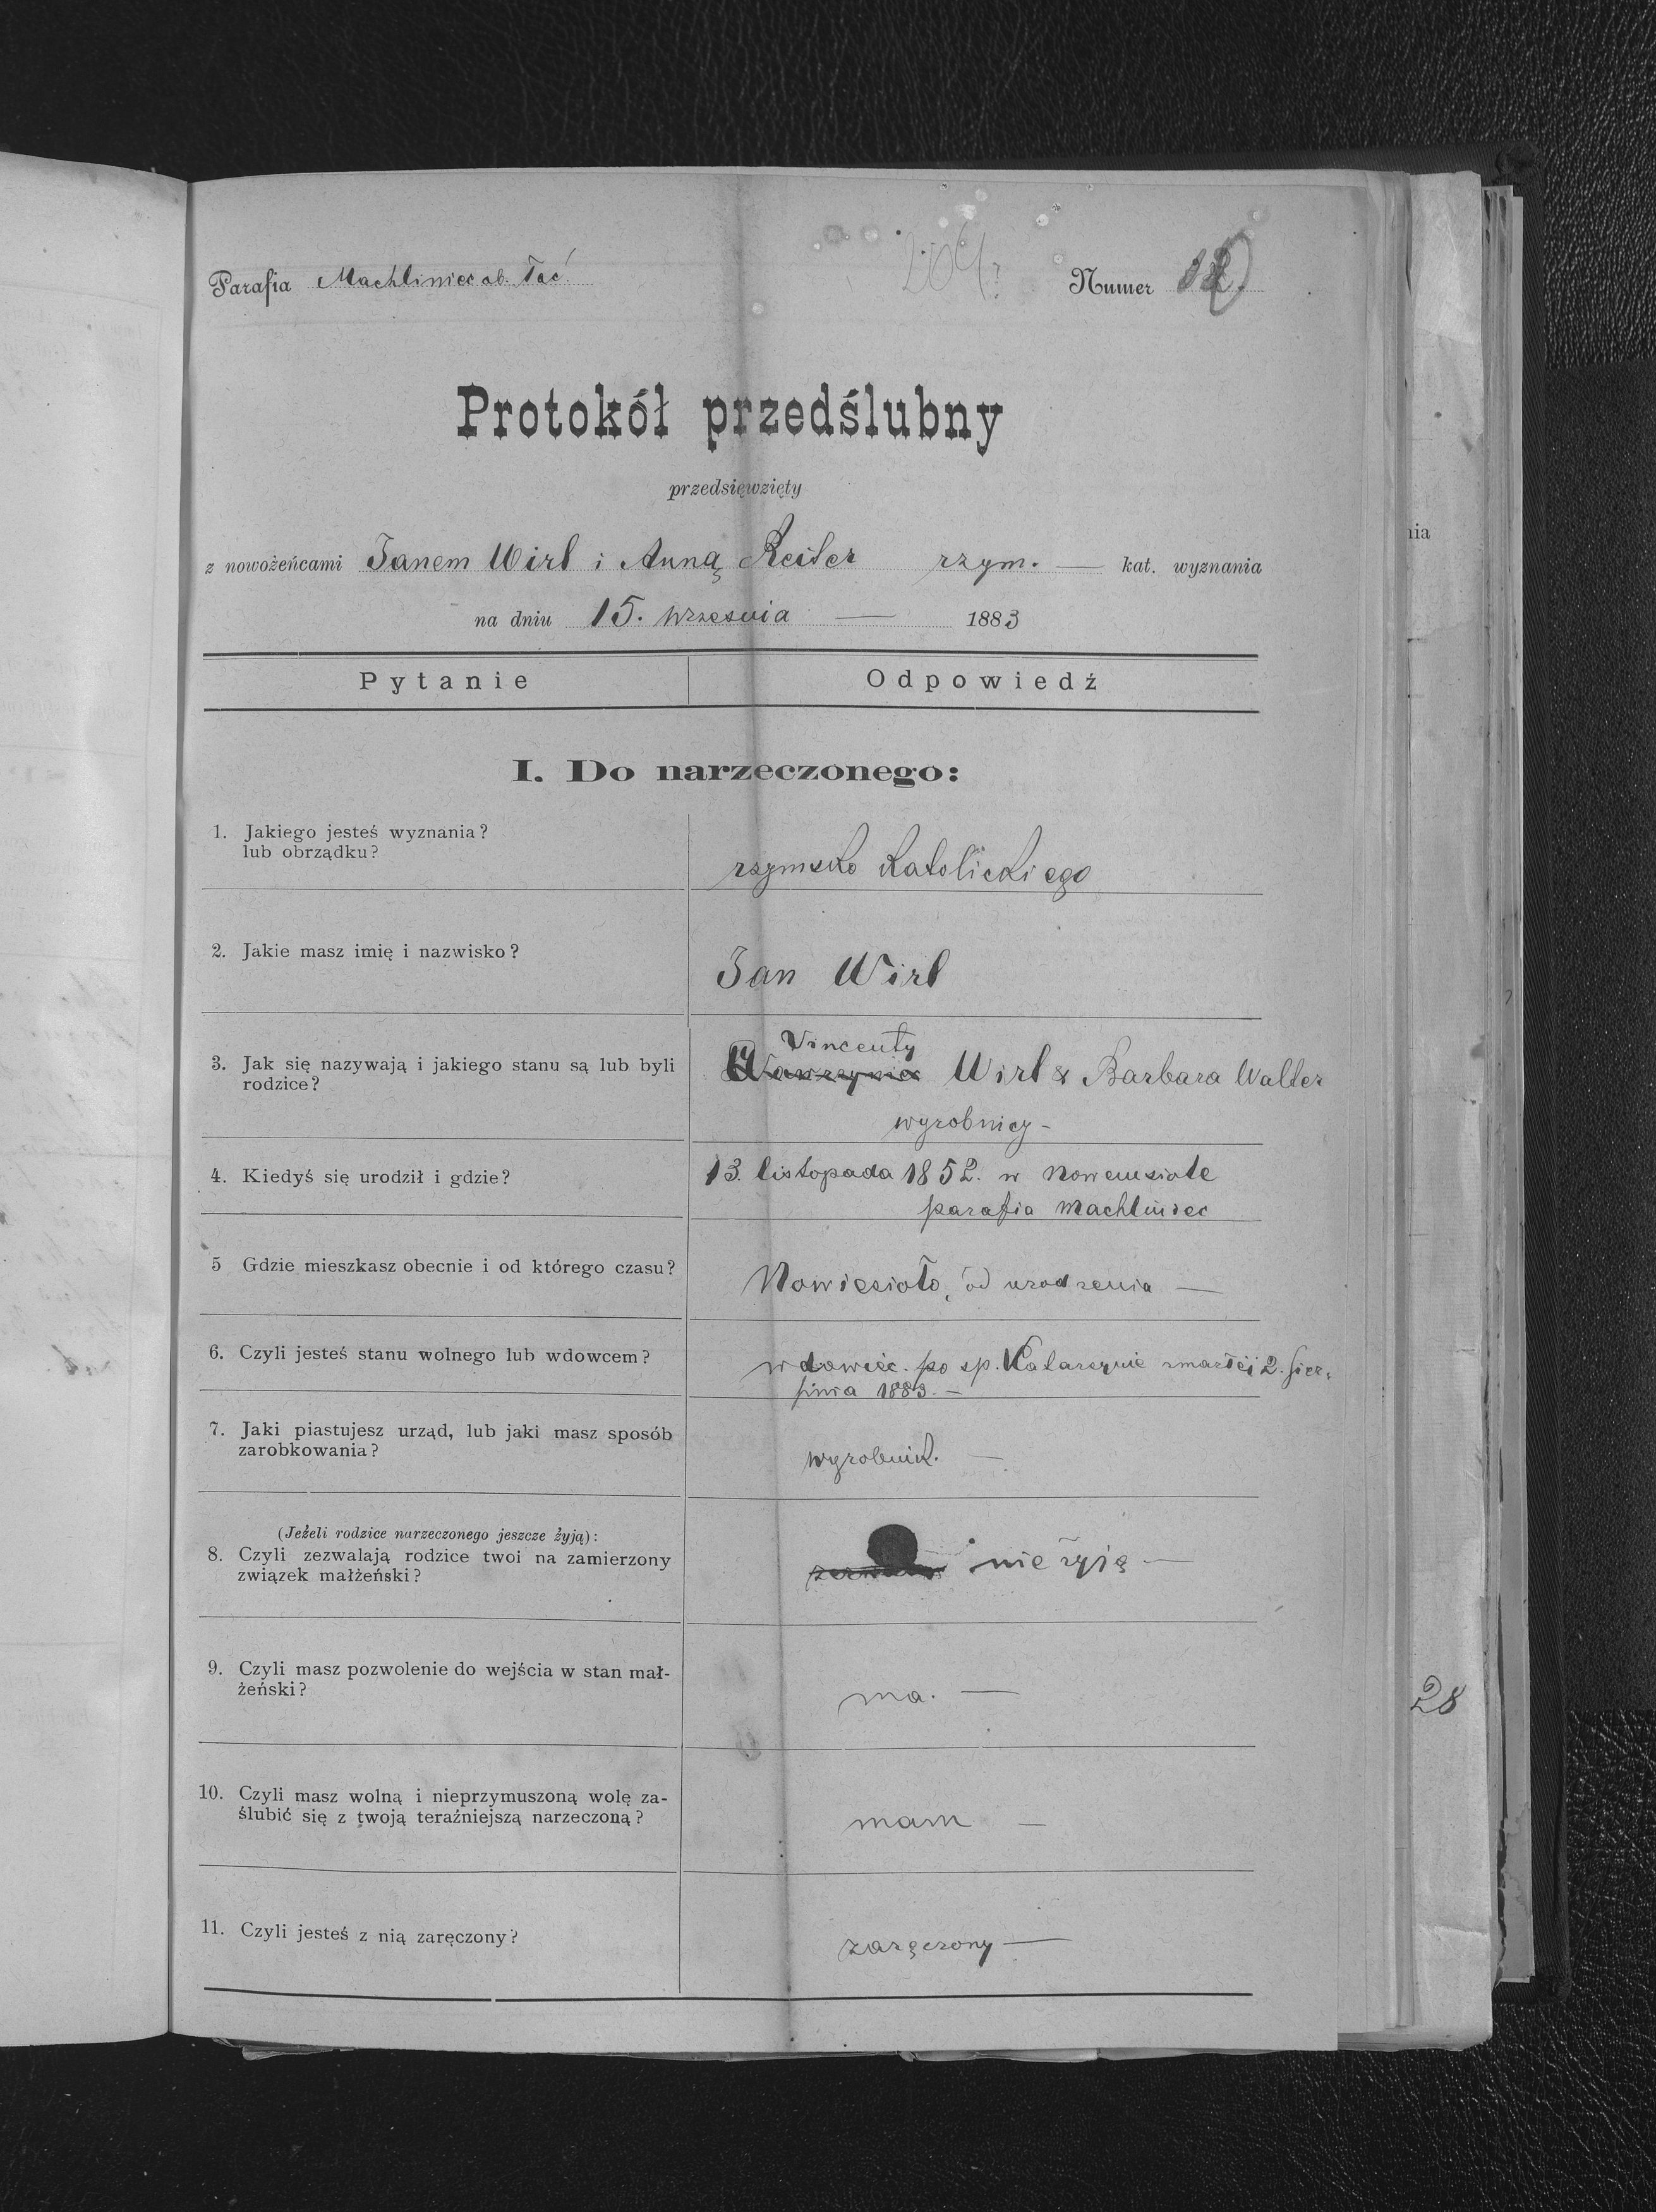 Parafia Machliniec ob. łać. Numer 12
Protokół przedślubny
przedsięwzięty
z nowożeńcami Janem Wirl i Anną Reiter rzym. — kat. wyznania
na dniu 15. września — 1883
Pytanie Odpowiedź
I. Do narzeczonego:
1. Jakiego jesteś wyznania?
lub obrządku?
rzymsko katolickiego
2. Jakie masz imię i nazwisko?
Jan Wirl
3. Jak się nazywają i jakiego stanu są lub byli
rodzice?
Vincenty
Wawrzyniec Wirl & Barbara Walter
wyrobnicy -
4. Kiedyś się urodził i gdzie?
13. listopada 1852. w Nowemsiole
parafia Machliniec
5 Gdzie mieszkasz obecnie i od którego czasu?
Nowiesioło, od urodzenia —
6. Czyli jesteś stanu wolnego lub wdowcem?
wdowiec. po sp. Katarzynie zmarłéj 2. sier-
pnia 1883. —
7. Jaki piastujesz urząd, lub jaki masz sposób
zarobkowania?
wyrobnik. —
(Jeżeli rodzice narzeczonego jeszcze żyją):
8. Czyli zezwalają rodzice twoi na zamierzony
związek małżeński?
nie żyją —
9. Czyli masz pozwolenie do wejścia w stan mał-
żeński?
ma. —
10. Czyli masz wolną i nieprzymuszoną wolę za-
ślubić się z twoją teraźniejszą narzeczoną?
mam —
11. Czyli jesteś z nią zaręczony?
zaręczony —
nia
28